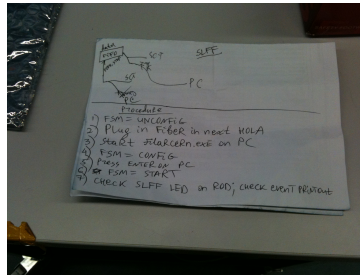 SLFF
PC
Procedure
1) FSM = UNCONFIG
2) Plug in Fiber in next HOLA
3) Start filarcern.exe on PC
4) FSM = CONFIG
5) PRESS ENTER ON PC
6) FSM = START
7) CHECK SLFF LED on ROD; CHECK EVENT PRINTOUT